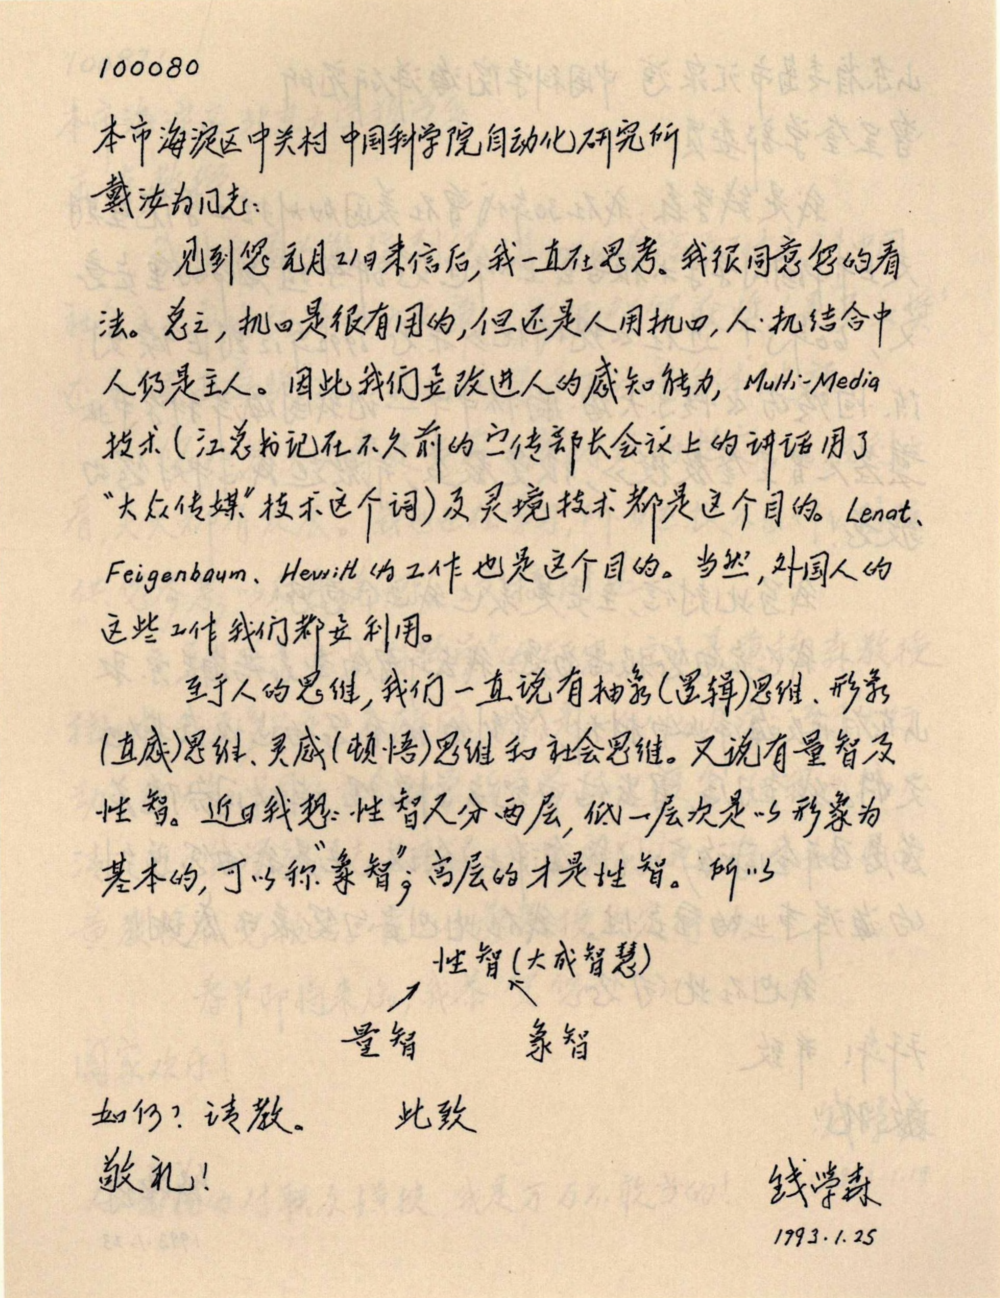 100080
本市海淀区中关村 中国科学院自动化研究所
戴汝为同志：
见到您元月21日来信后，我一直在思考。我很同意您的看
法。总之，机四是很有用的，但还是人用机四，人·机结合中
人仍是主人。因此我们要改进人的感知能力，Multi-Media
技术（江总书记在不久前的宣传部长会议上的讲话用了
“大众传媒”技术这个词）及灵境技术都是这个目的。Lenat、
Feigenbaum、Hewitt的工作也是这个目的。当然，外国人的
这些工作我们都要利用。
至于人的思维，我们一直说有抽象（逻辑）思维、形象
（直感）思维、灵感（顿悟）思维和社会思维。又说有量智及
性智。近日我想：性智又分两层，低一层次是以形象为
基本的，可以称“象智”；高层的才是性智。所以
性智（大成智慧）
量智 象智
如何？请教。 此致
敬礼！
钱学森
1993.1.25